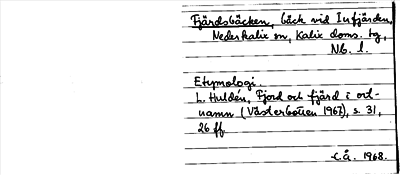 Fjärdsbäcken, bäck vid Infjärden,
Nederkalix sn, Kalix doms. tg,
Nb. l.
Etymologi
L. Huldén, Fjord och fjärd i ort-
namn (Västerbotten 1967), s. 31,
26 ff.
C.Å. 1968.